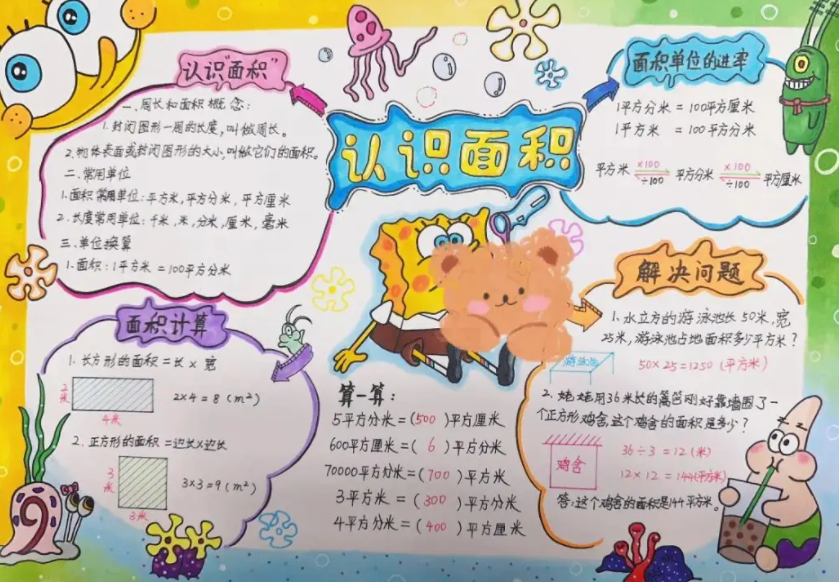 认识面积
认识"面积"
一、周长和面积概念：
1.封闭图形一周的长度,叫做周长。
2.物体表面或封闭图形的大小,叫做它们的面积。
二、常用单位
1.面积常用单位：平方米,平方分米,平方厘米
2.长度常用单位：千米,米,分米,厘米,毫米
三、单位换算
1.面积：1平方米 = 100平方分米
面积单位的进率
1平方分米 = 100平方厘米
1平方米 = 100平方分米
×100 ×100
平方米 平方分米 平方厘米
÷100 ÷100
面积计算
1.长方形的面积=长×宽
2米
4米
2×4=8(m²)
2.正方形的面积=边长×边长
3米
3米
3×3=9(m²)
算一算：
5平方分米=(500)平方厘米
600平方厘米=(6)平方分米
70000平方分米=(700)平方米
3平方米=(300)平方分米
4平方分米=(400)平方厘米
解决问题
1.水立方的游泳池长50米,宽
25米,游泳池占地面积多少平方米?
游泳池
50×25=1250(平方米)
2.姥姥用36米长的篱笆刚好靠墙围了一
个正方形鸡舍,这个鸡舍的面积是多少?
鸡舍
36÷3=12(米)
12×12=144(平方米)
答:这个鸡舍的面积是144平方米。